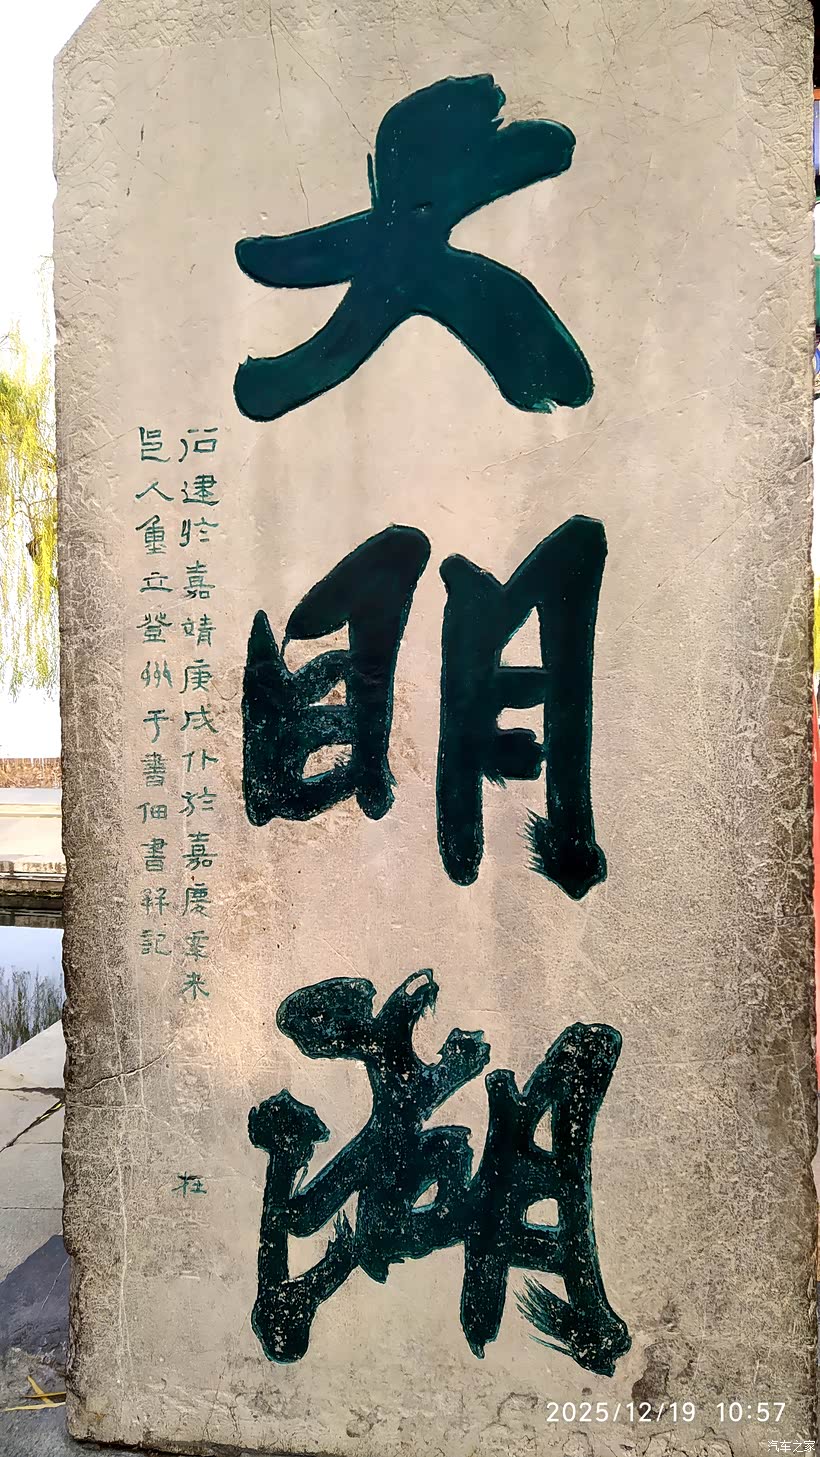 大明湖
石建於嘉靖庚戌仆於嘉慶辛未
邑人重立登州于書佃書并記
2025/12/19 10:57
汽车之家